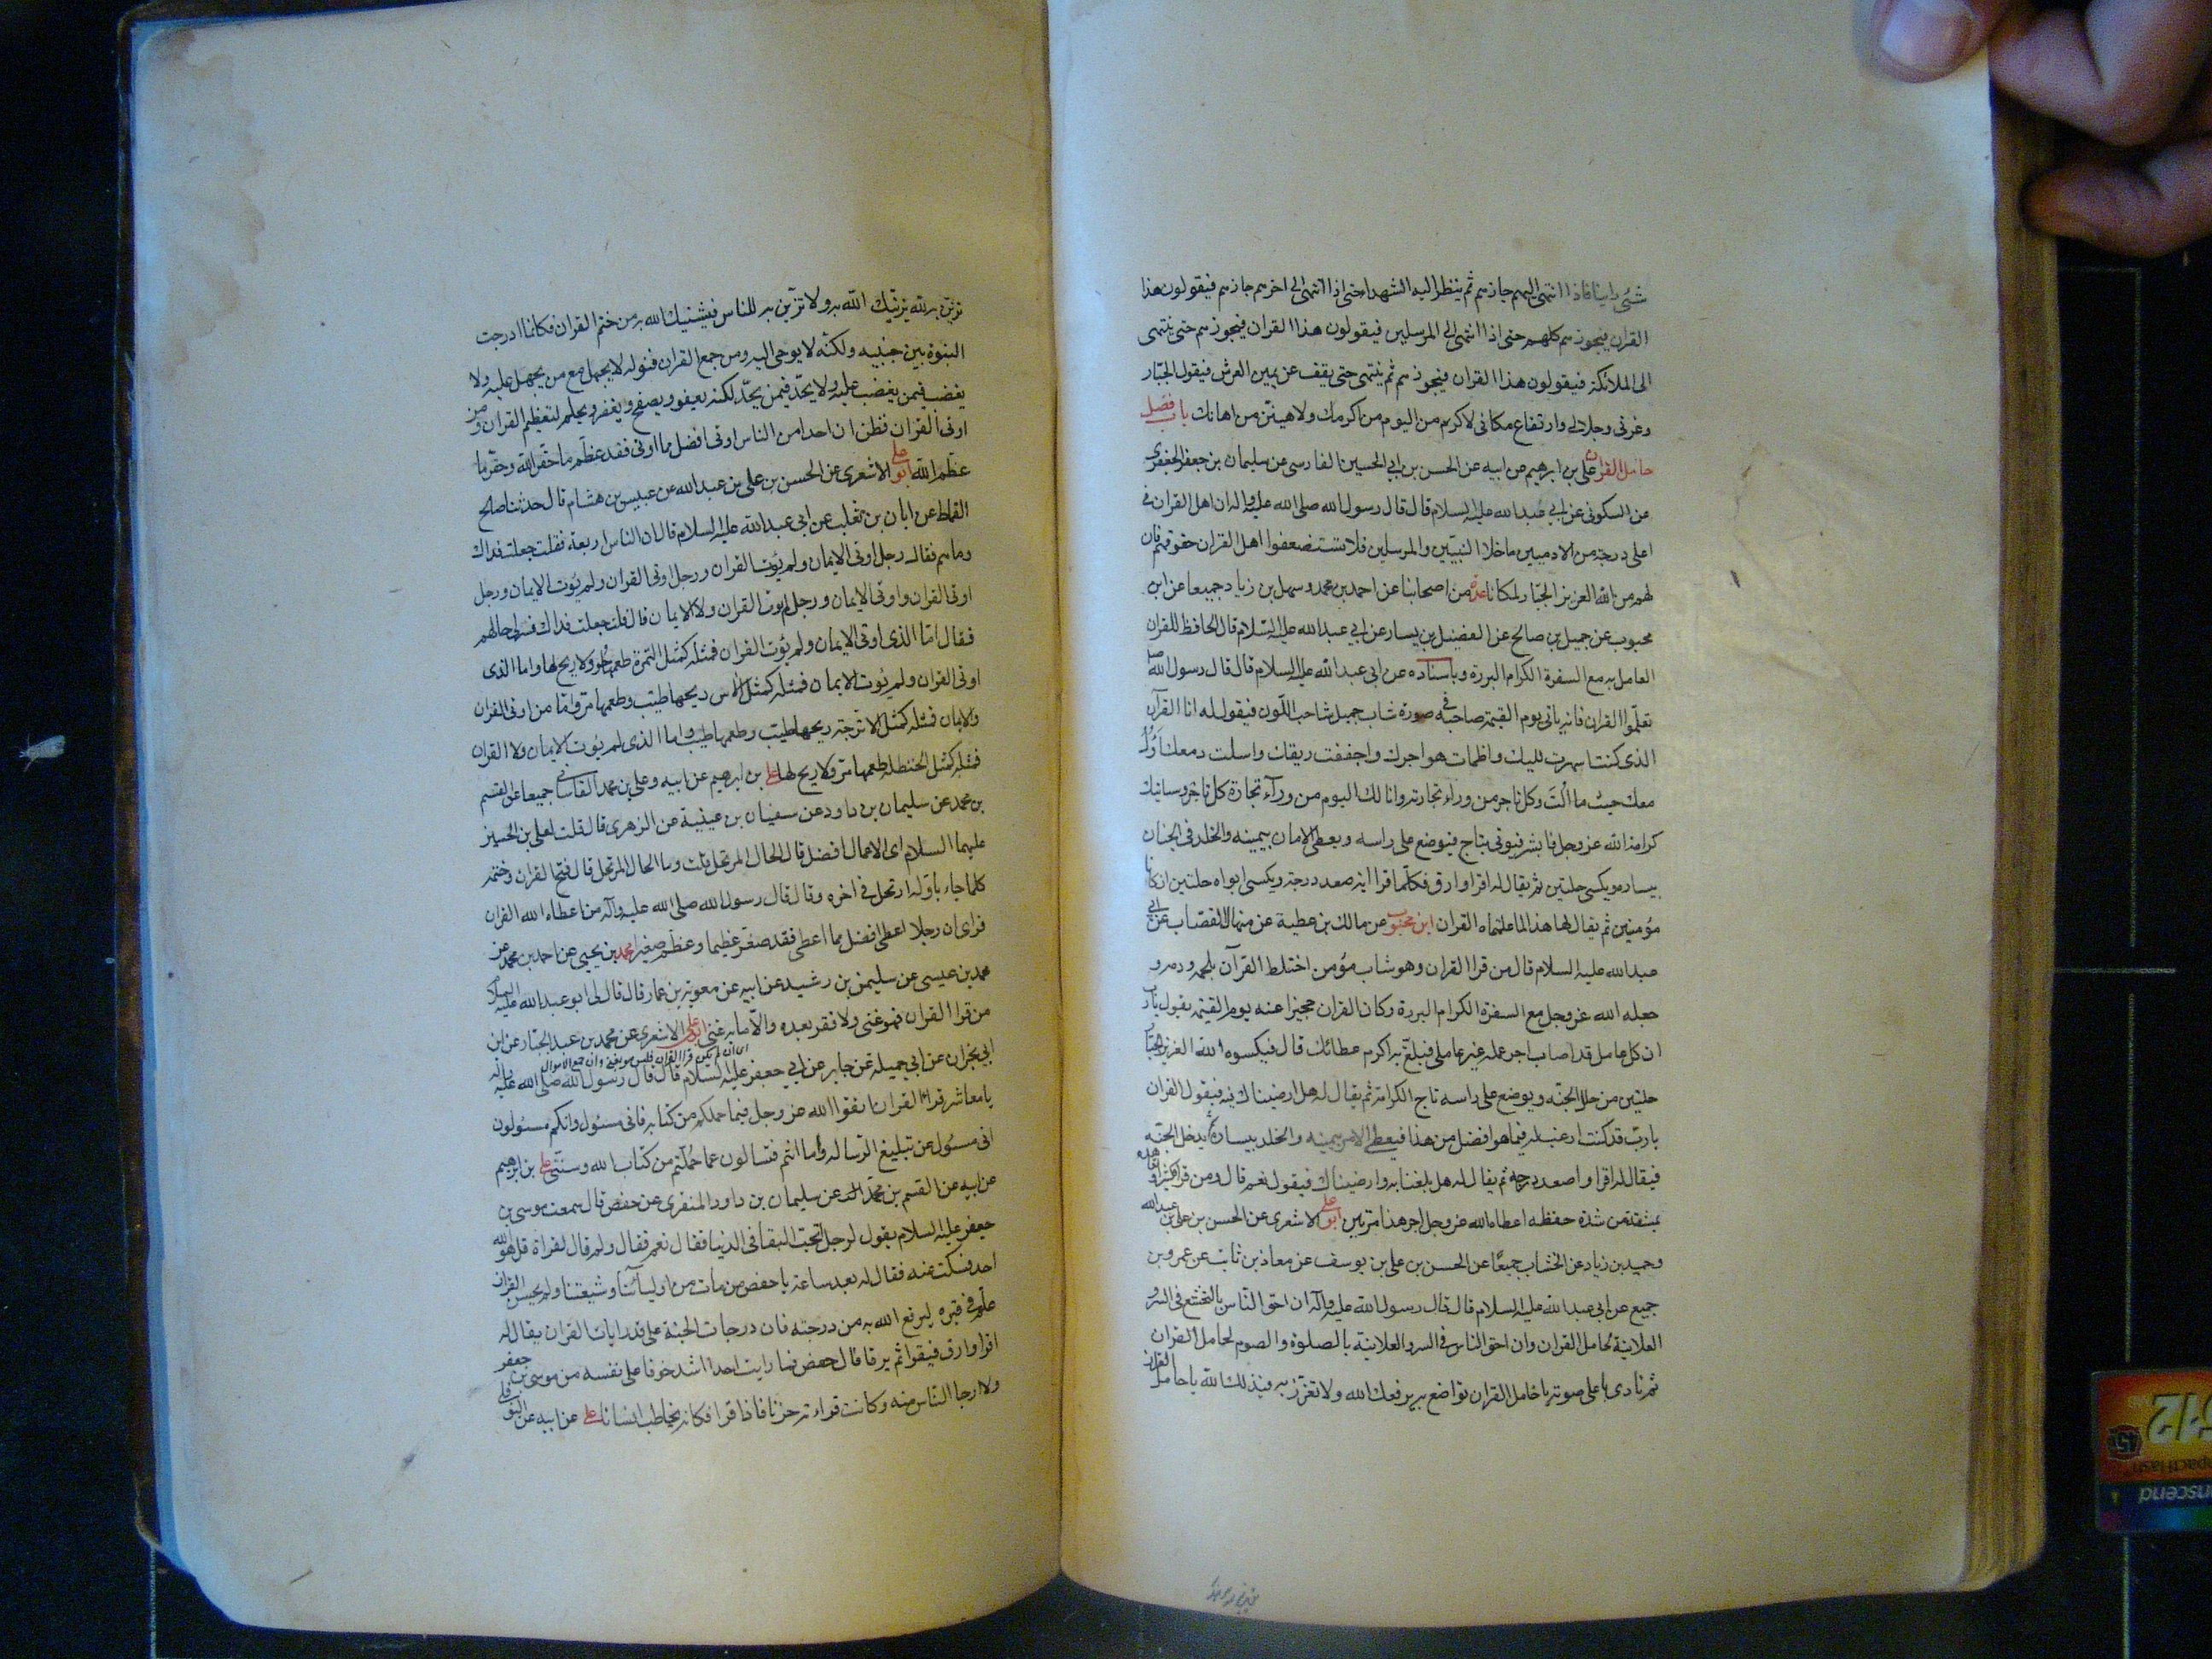 شئ راينا فاذا انتهى اليهم جازهم ثم ينظر اليه الشهداء حتى اذا انتهى الى اخرهم جازهم فيقولون هذا
القران فيجوزهم كلهم حتى اذا انتهى الى المرسلين فيقولون هذا القران فيجوزهم حتى ينتهى
الى الملائكة فيقولون هذا القران فيجوزهم ثم ينتهى حتى يقف عن يمين العرش فيقول الجبار
وعزتى وجلالى وارتفاع مكانى لاكرمن اليوم من اكرمك ولاهينن من اهانك باب فضل
حامل القران على بن ابرهيم عن ابيه عن الحسن بن ابي الحسين الفارسى عن سليمان بن جعفر الجعفرى
عن السكونى عن ابي عبدالله عليه السلام قال قال رسول الله صلى الله عليه واله ان اهل القران فى
اعلى درجة من الادميين ماخلا النبيين والمرسلين فلا تستضعفوا اهل القران حقوقهم فان
لهم من الله العزيز الجبار لمكانا عدة من اصحابنا عن احمد بن محمد وسهل بن زياد جميعا عن ابن
محبوب عن جميل بن صالح عن الفضيل بن يسار عن ابي عبدالله عليه السلام قال الحافظ للقران
العامل به مع السفرة الكرام البررة وباسناده عن ابى عبدالله عليه السلام قال قال رسول الله
تعلموا القران فانه ياتى يوم القيمة صاحبه فى صورة شاب جميل شاحب اللون فيقول له انا القران
الذى كنت اسهرت ليلك واظمات هواجرك واجففت ريقك واسلت دمعتك اول
معك حيث ما الت وكل تاجر من وراء تجارته وانا لك اليوم من وراء تجارة كل تاجر وسياتيك
كرامة الله عز وجل فابشر فيوتى بتاج فيوضع على راسه ويعطى الامان بيمينه والخلد فى الجنان
بيساره ويكسى حلتين ثم يقال له اقرا وارق فكلما قرا اية صعد درجة ويكسى ابواه حلتين ان كانا
مؤمنين ثم يقال لهما هذا لما علمتماه القران ابن محبوب عن مالك بن عطية عن منهال القصاب عن ابي
عبدالله عليه السلام قال من قرا القران وهو شاب مؤمن اختلط القران بلحمه ودمه و
جعله الله عز وجل مع السفرة الكرام البررة وكان القران حجيزا عنه يوم القيمة يقول يارب
ان كل عامل قد اصاب اجر عمله غير عاملى فبلغ به اكرم عطائك قال فيكسوه الله العزيز الجبار
حلتين من حلل الجنة ويوضع على راسه تاج الكرامة ثم يقال له هل ارضيناك فيه فيقول القران
يارب قد كنت ارغب له فيما هو افضل من هذا فيعطى الامن بيمينه والخلد بيساره ثم يدخل الجنة
فيقال له اقرا واصعد درجة ثم يقال له هل بلغنا به وارضيناك فيقول نعم قال ومن قراه كثيرا
بمشقة من شدة حفظه اعطاه الله عز وجل اجر هذا مرتين ابو على الاشعرى عن الحسن بن على بن عبدالله
وحميد بن زياد عن الخشاب جميعا عن الحسن بن على بن يوسف عن معاذ بن ثابت عن عمرو بن
جميع عن ابى عبدالله عليه السلام قال قال رسول الله عليه واله ان احق الناس بالتخشع فى السر و
العلانية لحامل القران وان احق الناس فى السر والعلانية بالصلوة والصوم لحامل القران
ثم نادى باعلى صوته يا حامل القران تواضع به يرفعك الله ولا تعزز به فيذلك الله يا حامل القران
تزين به لله يزينك الله به ولا تزين به للناس فيشينك الله به من ختم القران فكانما ادرجت
النبوة بين جنبيه ولكنه لا يوحى اليه ومن جمع القران فنوله لا يجهل مع من يجهل عليه ولا
يغضب فيمن يغضب عليه ولا يحد فيمن يحد لكنه يعفو ويصفح ويغفر ويحلم لتعظيم القران ومن
اوتى القران فظن ان احدا من الناس اوتى افضل مما اوتى فقد عظم ما حقر الله وحقر ما
عظم الله ابو على الاشعرى عن الحسن بن على بن عبدالله عن عبيس بن هشام قال حدثنا صالح
القماط عن ابان بن تغلب عن ابى عبدالله عليه السلام قال ان الناس اربعة فقلت جعلت فداك
وماهم فقال رجل اوتى الايمان ولم يؤت القران ورجل اوتى القران ولم يؤت الايمان ورجل
اوتى القران واوتى الايمان ورجل لم يوت القران ولا الايمان قال قلت جعلت فداك فسر لى حالهم
فقال اما الذى اوتى الايمان ولم يؤت القران فمثله كمثل التمرة طعمها حلو ولا ريح لها واما الذى
اوتى القران ولم يؤت الايمان فمثله كمثل الاس ريحها طيب وطعمها مر واما من اوتى القران
والايمان فمثله كمثل الاترجة ريحها طيب وطعمها طيب واما الذى لم يؤت الايمان ولا القران
فمثله كمثل الحنظلة طعمها مر ولا ريح لها على بن ابرهيم عن ابيه وعلى بن محمد القاسانى جميعا عن القسم
بن محمد عن سليمان بن داود عن سفيان بن عيينة عن الزهرى قال قلت لعلى بن الحسين
عليهما السلام اى الاعمال افضل قال الحال المرتحل قلت وما الحال المرتحل قال فتح القران وختمه
كلما جاء باوله ارتحل فى اخره وقال قال رسول الله صلى الله عليه واله من اعطاه الله القران
فراى ان رجلا اعطى افضل مما اعطى فقد صغر عظيما وعظم صغيرا محمد بن يحيى عن احمد بن محمد عن
محمد بن عيسى عن سليمن بن رشيد عن ابيه عن معوية بن عمار قال قال لى ابو عبدالله عليه السلام
من قرا القران فهو غنى ولا فقر بعده والا ما به غنى ابو على الاشعرى عن محمد بن عبد الجبار عن ابن
اى ان لم يكن قرا القران فليس هو بغنى وان جمع الاموال
ابي نجران عن ابي جميلة عن جابر عن ابي جعفر عليه السلام قال قال رسول الله صلى الله عليه واله
يا معاشر قراء القران اتقوا الله عز وجل فيما حملكم من كتابه فانى مسئول وانكم مسئولون
انى مسئول عن تبليغ الرسالة واما انتم فتسالون عما حملتم من كتاب الله وسنتى على بن ابرهيم
عن ابيه عن القسم بن محمد عن سليمان بن داود المنقرى عن حفص قال سمعت موسى بن
جعفر عليه السلام يقول لرجل اتحب البقا فى الدنيا فقال نعم فقال ولم قال لقراة قل هو الله
احد فسكت عنه فقال له بعد ساعة يا حفص من مات من اوليائنا وشيعتنا ولم يحسن القران
علم فى قبره ليرفع الله به من درجته فان درجات الجنة على قدر ايات القران يقال له
اقرا وارق فيقرا ثم يرقا قال حفص فما رايت احدا اشد خوفا على نفسه من موسى بن جعفر
ولا ارجا الناس منه وكانت قراءته حزنا فاذا قرا فكانه يخاطب انسانا على عن ابيه عن النوفلى
512
45x
CompactFlash
Transcend